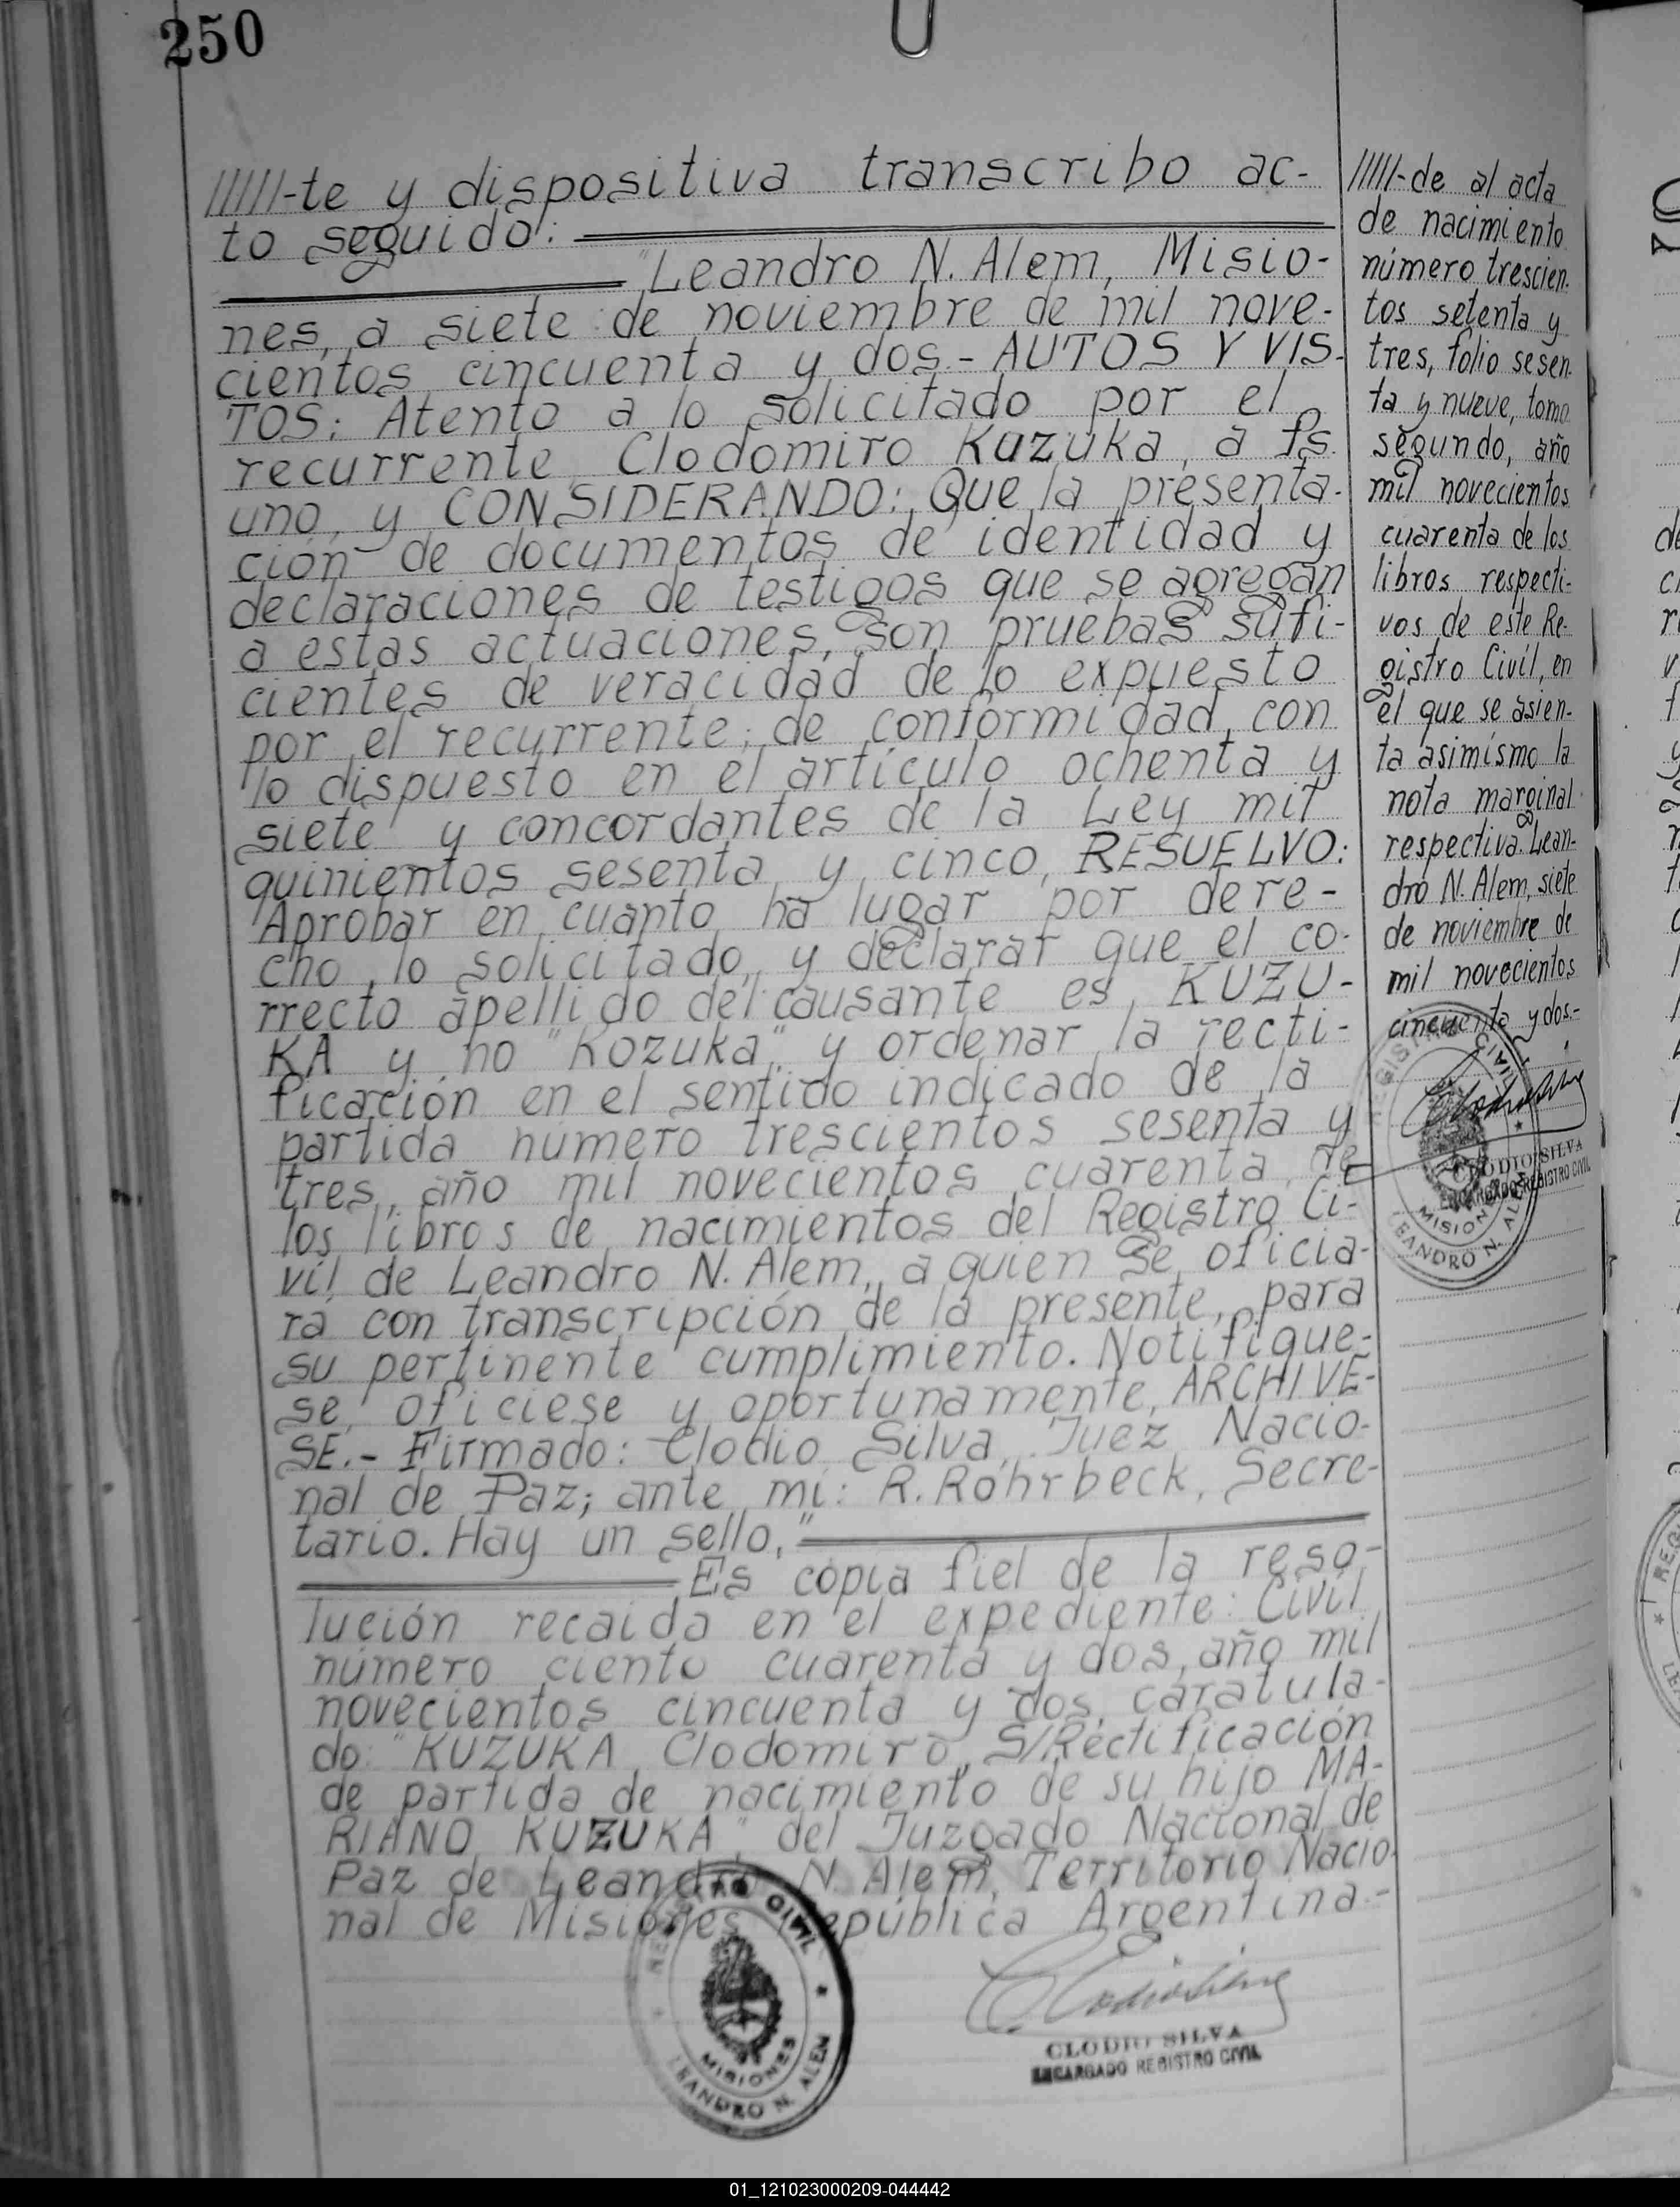 250
//////-te y dispositiva transcribo ac-
to seguido:
"Leandro N. Alem, Misio-
nes, a siete de noviembre de mil nove-
cientos cincuenta y dos.- AUTOS Y VIS-
TOS: Atento a lo solicitado por el
recurrente Clodomiro Kuzuka, a fs.
uno, y CONSIDERANDO: Que la presenta-
ción de documentos de identidad y
declaraciones de testigos que se agregan
a estas actuaciones, son pruebas sufi-
cientes de veracidad de lo expuesto
por el recurrente; de conformidad con
lo dispuesto en el artículo ochenta y
siete y concordantes de la Ley mil
quinientos sesenta y cinco, RESUELVO:
Aprobar en cuanto ha lugar por dere-
cho lo solicitado, y declarar que el co-
rrecto apellido del causante es KUZU-
KA y no "Kozuka", y ordenar la recti-
ficación en el sentido indicado de la
partida número trescientos sesenta y
tres, año mil novecientos cuarenta, de
los libros de nacimientos del Registro Ci-
vil de Leandro N. Alem, a quien se oficia-
rá con transcripción de la presente, para
su pertinente cumplimiento. Notifíque-
se, ofíciese y oportunamente, ARCHIVE-
SE.- Firmado: Clodio Silva, Juez Nacio-
nal de Paz; ante mí: R. Rohrbeck, Secre-
tario. Hay un sello."
Es copia fiel de la reso-
lución recaída en el expediente: Civil
número ciento cuarenta y dos, año mil
novecientos cincuenta y dos, caratula-
do: "KUZUKA Clodomiro, S/Rectificación
de partida de nacimiento de su hijo MA-
RIANO KUZUKA", del Juzgado Nacional de
Paz de Leandro N. Alem, Territorio Nacio-
nal de Misiones, República Argentina.-
REGISTRO CIVIL
MISIONES
LEANDRO N. ALEM
Clodio Silva
CLODIO SILVA
ENCARGADO REGISTRO CIVIL
/////-de al acta
de nacimiento
número trescien-
tos setenta y
tres, folio sesen-
ta y nueve, tomo
segundo, año
mil novecientos
cuarenta de los
libros respecti-
vos de este Re-
gistro Civil, en
el que se asien-
ta asimismo la
nota marginal
respectiva. Lean-
dro N. Alem, siete
de noviembre de
mil novecientos
cincuenta y dos.-
REGISTRO CIVIL
MISIONES
LEANDRO N. ALEM
Clodio Silva
CLODIO SILVA
ENCARGADO REGISTRO CIVIL
01_121023000209-044442